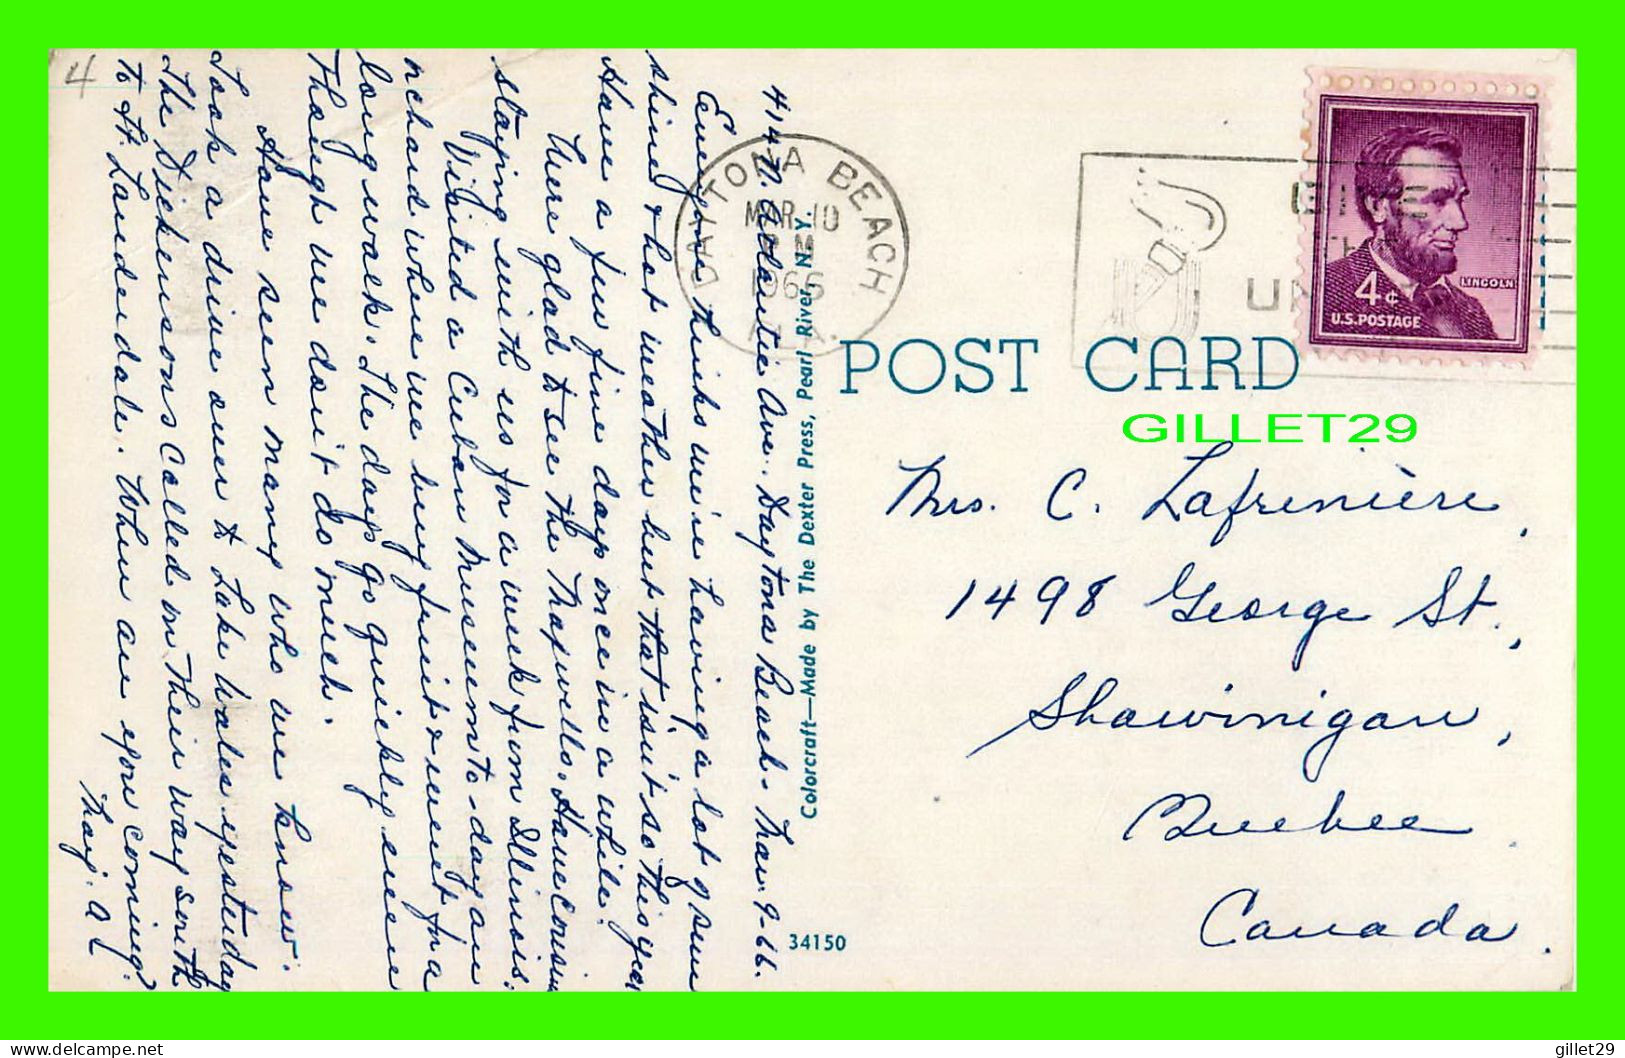 4
414 N. Atlantic Ave. Daytona Beach. Mar. 9-66.
Everyone thinks we're having a lot of sun
shine & hot weather but that isn't so this year
Have a few fine days once in a while.
Were glad to see the Maxwells. Have cousins
staying with us for a week from Illinois.
Visited a Cuban Museum to-day an
orchard where we buy fruit & went for a
long walk. The days go quickly even
Though we don't do much.
Have seen many who we know.
Took a drive over to Lake Wales yesterday
The Dickensons called on Their way South
to Ft. Lauderdale. When are you coming?
DAYTONA BEACH
MAR 10
PM
1966
FLA.
Colorcraft—Made by The Dexter Press, Pearl River, N. Y.
34150
4¢
LINCOLN
U.S. POSTAGE
POST CARD
GILLET29
Mrs. C. Lafrenière,
1498 George St.,
Shawinigan,
Quebec
Canada.
delcampe.net
gillet29